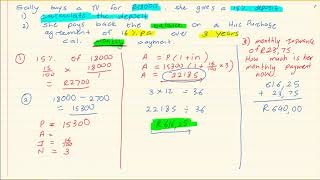 Sally buys a TV for R18000, she gives a 15% deposit
1) calculate the deposit
2) She pays back the balance on a Hire Purchase
agreement of 16% pa over 3 years
cal. monthly payment.
① 15% of 18000
15/100 x 18000/1
= R2700
② 18000 - 2700
= 15300
P = 15300
A =
I = 16/100
N = 3
A = P(1+in)
A = 15300(1 + 16/100 x 3)
A = 22185
3 x 12 = 36
22185 ÷ 36
R616,25
3) monthly insurance
of R23,75.
How much is her
monthly payment
now?
616,25
+ 23,75
R640,00